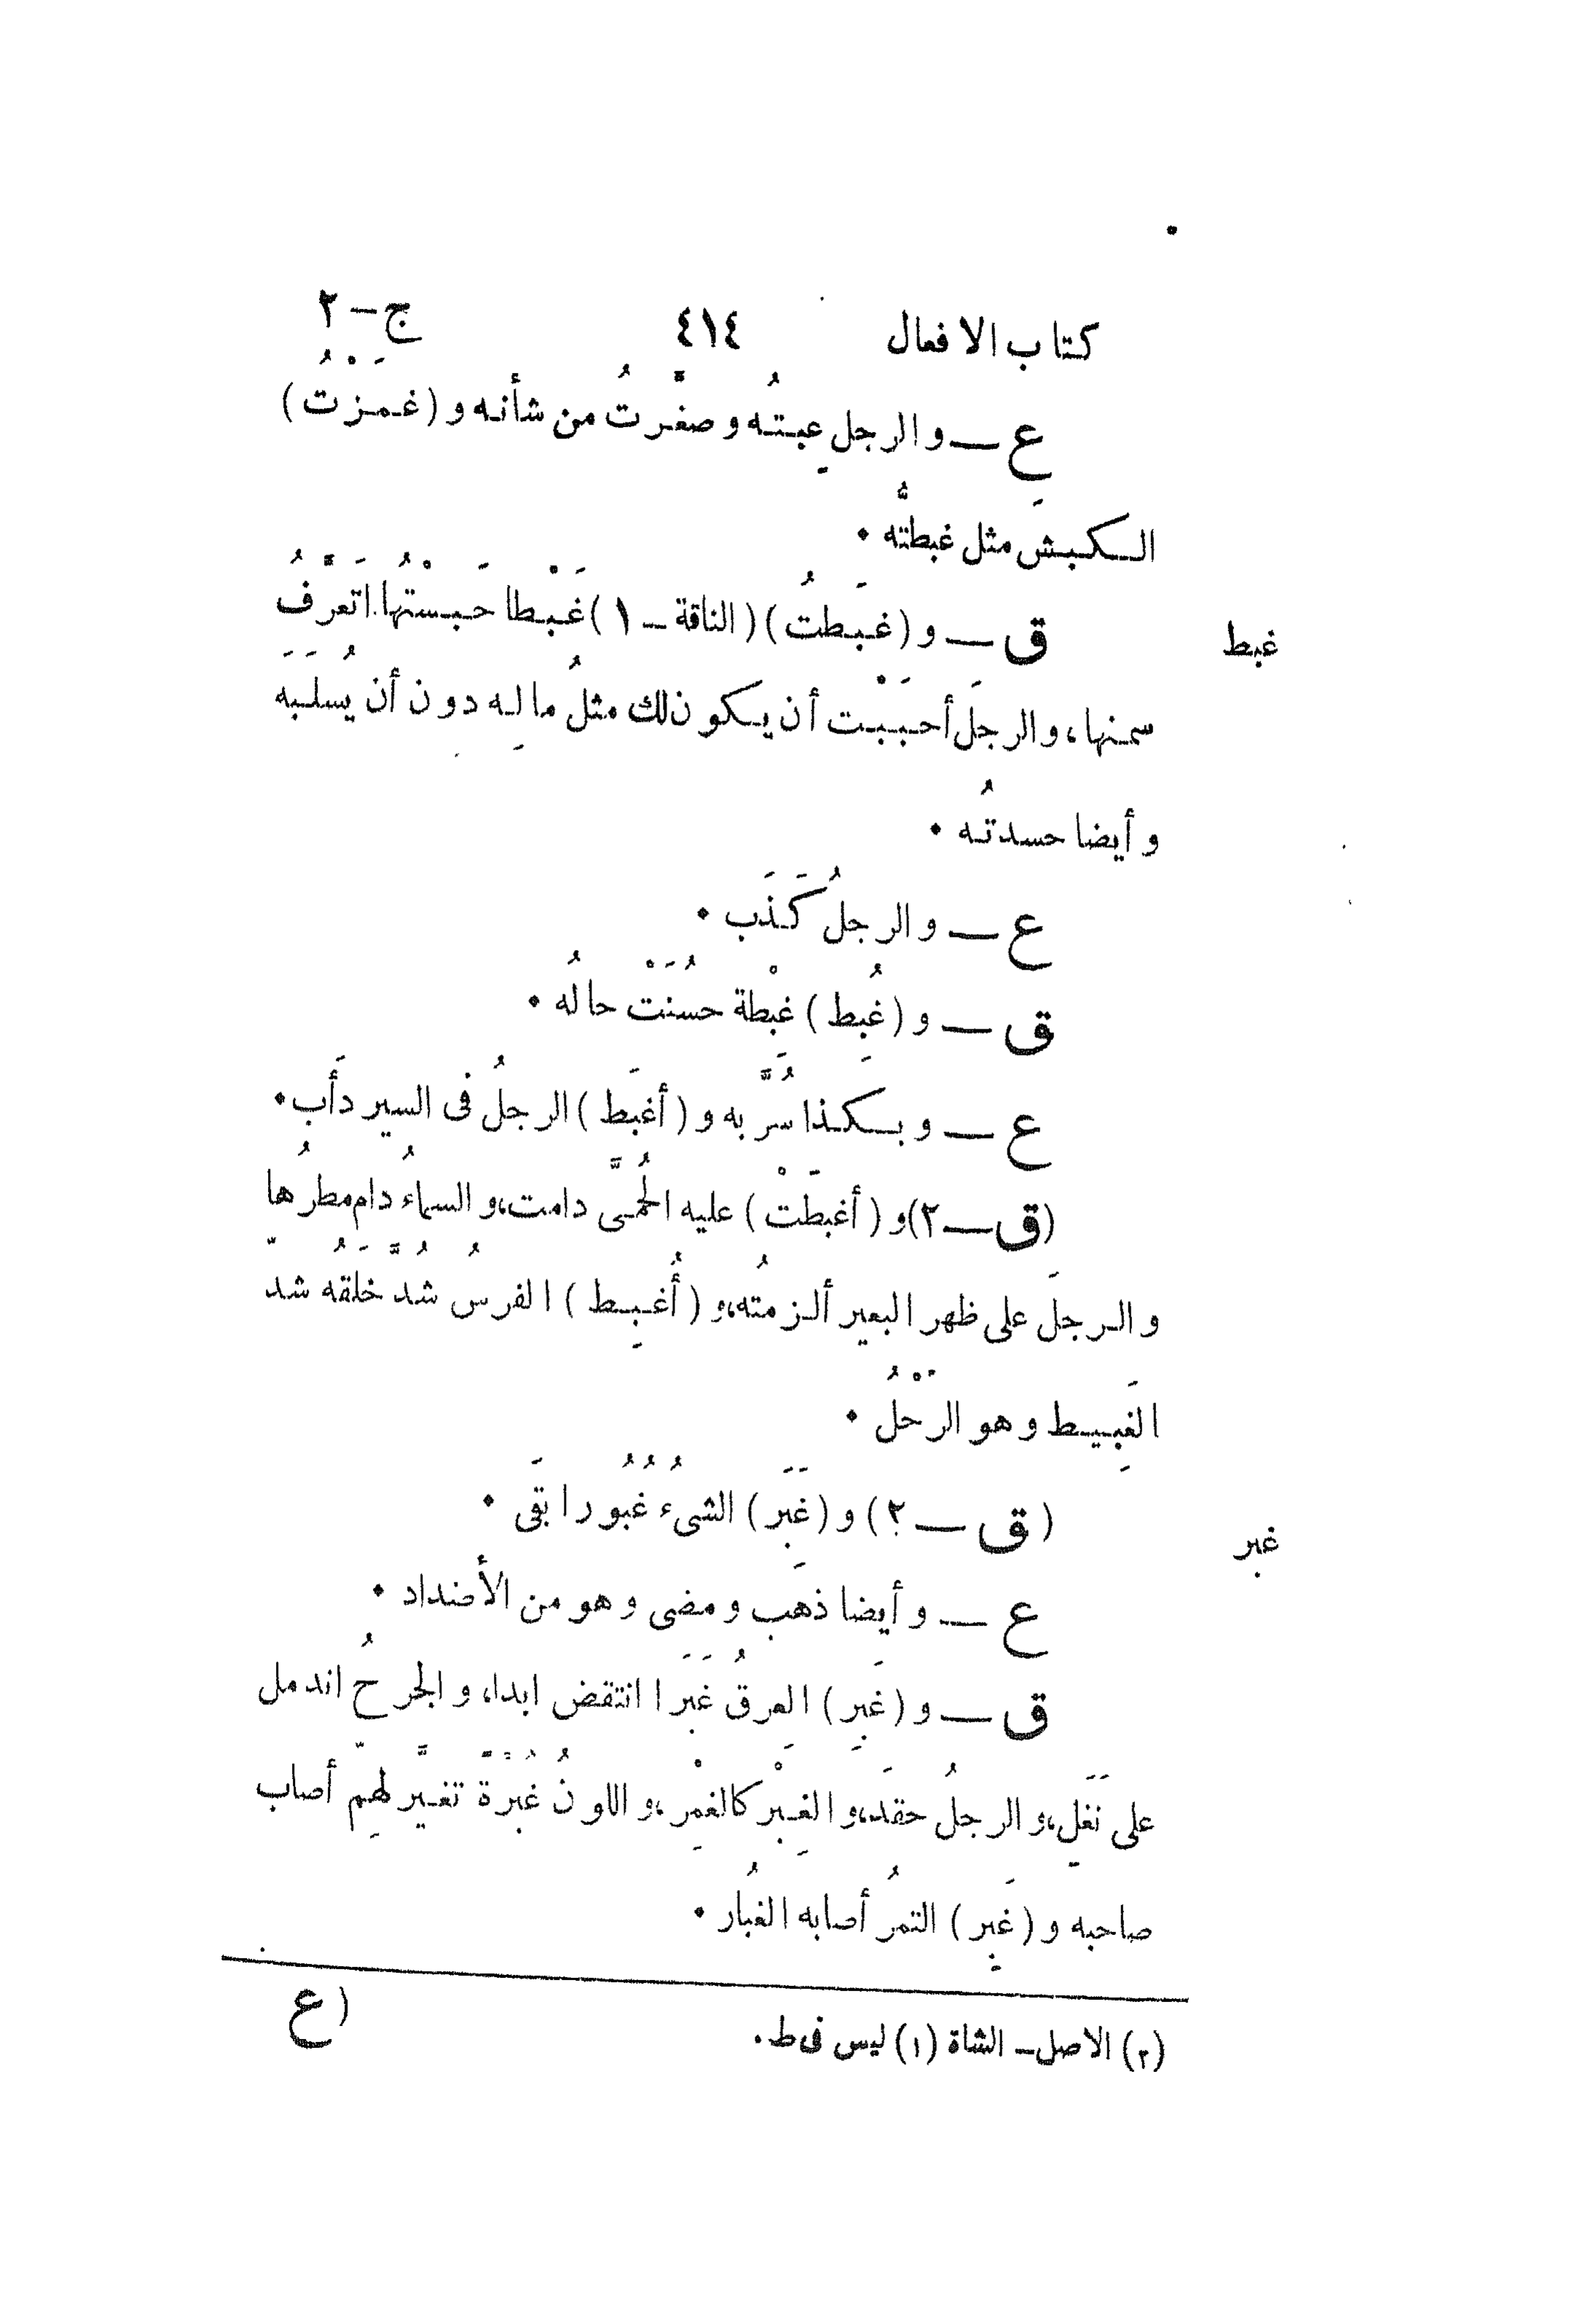 كتاب الافعال ٤١٤ ج – ٢
ع — و الرجل عِبتُه و صغَّرتُ من شأنه و (غَمَزْتُ)
الكبشَ مثل غبطتُّه •
غبط
ق — و (غَبَطتُ) (الناقة – ١) غَبْطا حَبَسْتُها اتَعَرَّفُ
سمنها، و الرجلَ أحبَبْت أن يكون لك مثلُ ما لِه دون أن يُسلَبَه
و أيضا حسدتُه •
ع — و الرجلُ كَذَب •
ق — و (غُبِط) غِبْطة حسُنَتْ حالُه •
ع — و بكذا سُرَّ به و (أغبَط) الرجلُ فى السير دَأَب •
(ق — ٢) و (أغبَطَتْ) عليه الحُمَّى دامت، و السماءُ دام مطرُها
و الرجلَ على ظهر البعير ألزمتُه، و (أُغبِط) الفرسُ شُدَّ خَلقُه شدّ
الغَبِيط و هو الرَحْلُ •
غبر
(ق — ٢) و (غَبَر) الشىءُ غُبُورا بقَى •
ع — و أيضا ذهَب و مضى و هو من الأضداد •
ق — و (غَبِر) العِرقُ غَبَرا انتقض ابدا، و الجرحُ اندمل
على نَغَلٍ، و الرجلُ حقَد، و الغِبْر كالغِمْر، و اللونُ غُبْرَةً تغيَّر لهِمّ أصاب
صاحبه و (غَبِر) التمرُ أصابه الغُبار •
(٢) الاصل – الشاة (١) ليس فى ط.
(ع